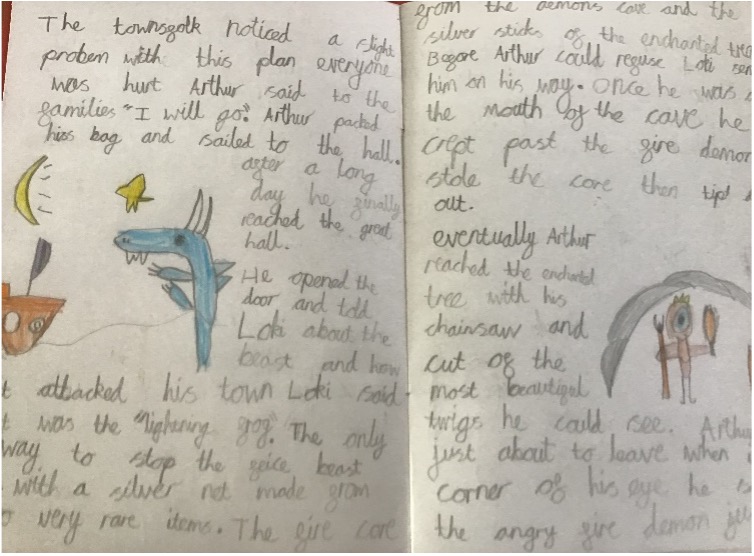 The townsfolk noticed a slight
probem with this plan everyone
was hurt Arthur said to the
families "I will go." Arthur packed
hiss bag and sailed to the hall.
after a long
day he finally
reached the great
hall.
He opened the
door and told
Loki about the
beast and how
t attacked his town Loki said
t was the "lighening fog". The only
way to stop the feice beast
with a silver net made from
very rare items. The fire core
from the demons cave and the
silver sticks of the enchanted tree
Before Arthur could refuse Loki sen
him on his way. Once he was
the mouth of the cave he
crept past the fire demon
stole the core then tipt
out.
eventually Arthur
reached the enchanted
tree with his
chainsaw and
cut of the
most beautiful
twigs he could see. Arthu
just about to leave when
corner of his eye he
the angry fire demon